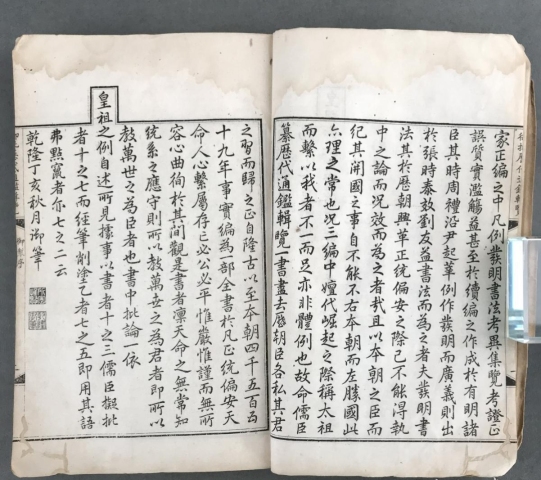 家正編之中凡例發明書法考異集覽考證正
誤質實濫觴益甚至於續編之作成於有明諸
臣其時周禮沿尹起莘例作發明而廣義則出
於張時泰效劉友益書法而為之者夫發明書
法其於歷朝興革正統偏安之際已不能淂執
中之論而况效而為之者哉且以本朝之臣而
紀其開國之事自不能不右本朝而左勝國此
亦理之常也况三編中嬗代崛起之際稱太祖
而繫以我者不一而足亦非體例也故命儒臣
纂歷代通鑑輯覽一書盡去歷朝臣各私其君
之習而歸之正自隆古以至本朝四千五百五
十九年事實編為一部全書於凡正統偏安天
命人心繫屬存亡必公必平惟嚴惟謹而無所
容心曲徇於其間觀是書者凜天命之無常知
統系之應守則所以教萬世之為君者即所以
教萬世之為臣者也書中批論一依
皇祖之例自述所見據事以書者十之三儒臣擬批
者十之七而經筆削塗乙者七之五即用其語
弗點竄者亦七之二云
乾隆丁亥秋月御筆